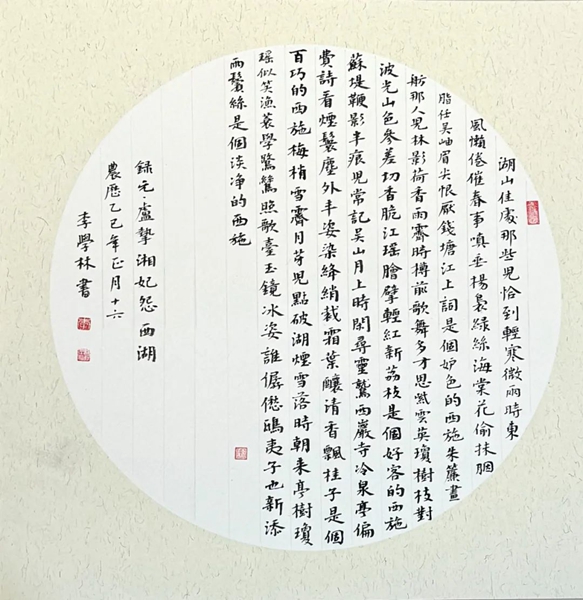 湖山佳處那些兒恰到輕寒微雨時東
風懶倦催春事嗔垂楊裊綠絲海棠花偷抹胭
脂任吴岫眉尖恨厭錢塘江上詞是個妒色的西施朱簾畫
舫那人兒林影荷香雨霽時樽前歌舞多才思紫雲英瓊樹枝對
波光山色參差切香脆江瑤膾擘輕紅新荔枝是個好客的西施
蘇堤鞭影半痕兒常記吴山月上時閑尋靈鷲西巖寺冷泉亭偏
費詩看煙鬟塵外丰姿染絳綃裁霜葉釀清香飄桂子是個
百巧的西施梅梢雪霽月芽兒點破湖煙雪落時朝來亭樹瓊
瑤似笑漁蓑學鷺鷥照歌臺玉鏡冰姿誰僝僽鴟夷子也新添
兩鬢絲是個淡净的西施
録元·盧摯湘妃怨西湖
農曆乙巳年正月十六
李學林書